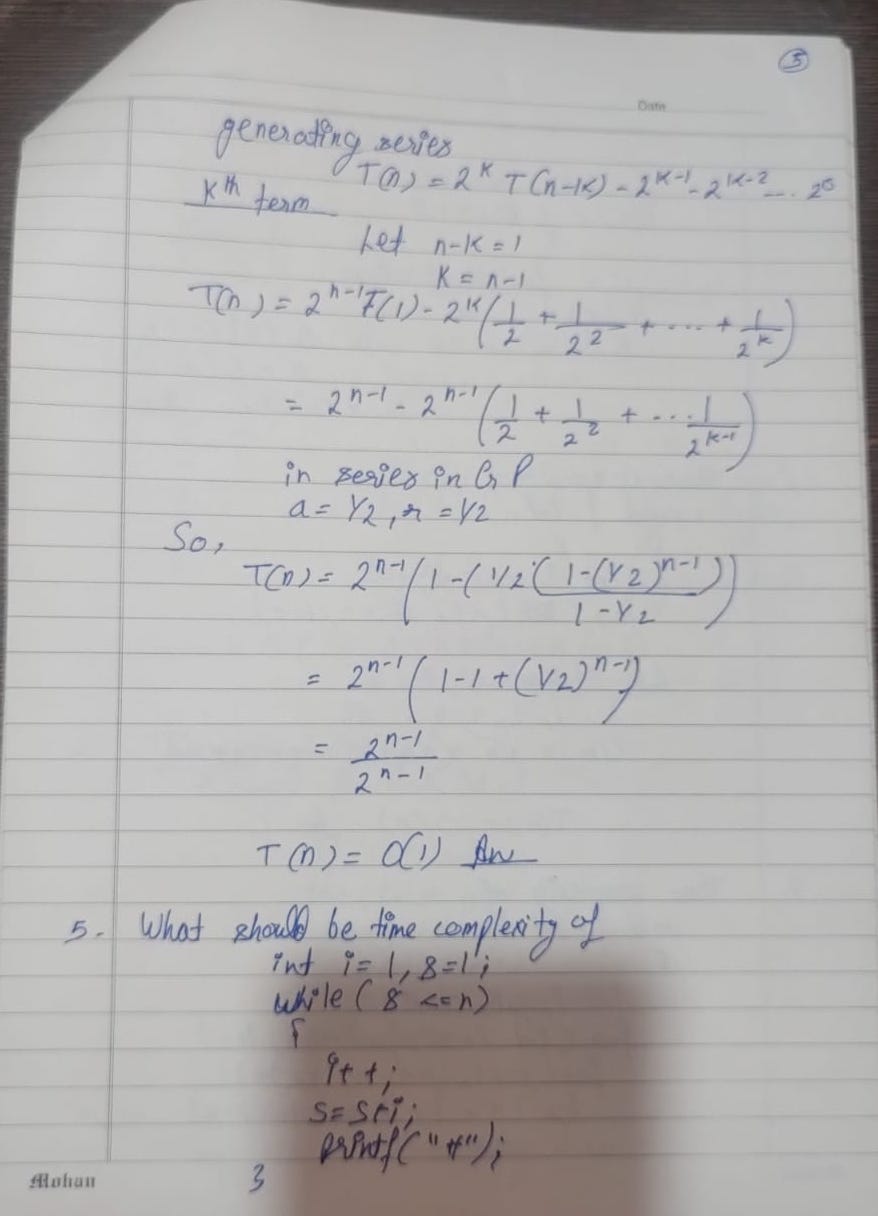 5
Date
generating series
T(n) = 2^K T(n-K) - 2^{K-1} - 2^{K-2} ... 2^0
Kth term
Let n-K = 1
K = n-1
T(n) = 2^{n-1} T(1) - 2^K (1/2 + 1/2^2 + .... + 1/2^K)
= 2^{n-1} - 2^{n-1} (1/2 + 1/2^2 + ... 1/2^{K-1})
in series in G P
a = 1/2, r = 1/2
So,
T(n) = 2^{n-1} (1-(1/2 (1-(1/2)^{n-1})/(1-1/2)))
= 2^{n-1} (1-1+(1/2)^{n-1})
= 2^{n-1}/2^{n-1}
T(n) = O(1) Ans
5. What should be time complexity of
int i=1, s=1;
while (s <=n)
{
i++;
s=s+i;
printf("#");
}
Mohan